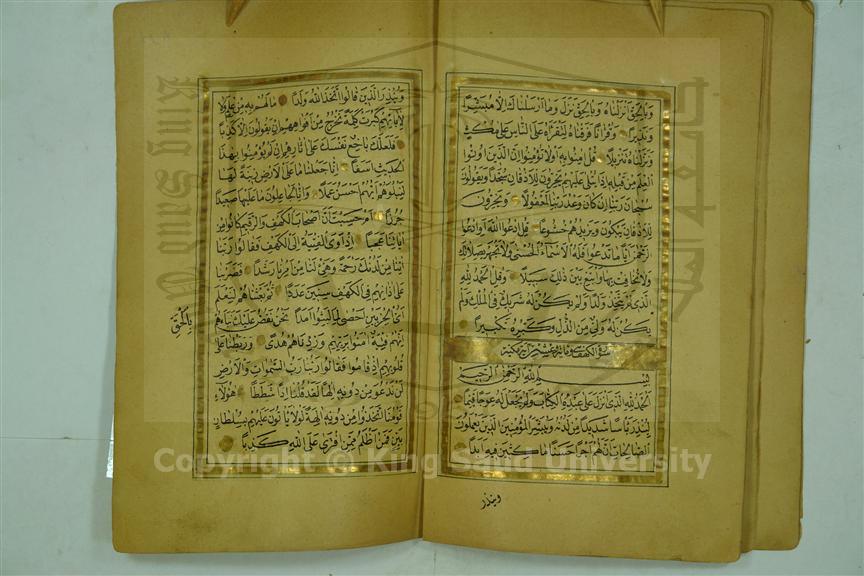 وبالحق انزلناه وبالحق نزل وما ارسلناك الا مبشرا
ونذيرا وقرانا فرقناه لتقراه على الناس على مكث
ونزلناه تنزيلا قل امنوا به او لا تؤمنوا ان الذين اوتوا
العلم من قبله اذا يتلى عليهم يخرون للاذقان سجدا ويقولون
سبحان ربنا ان كان وعد ربنا لمفعولا ويخرون
للاذقان يبكون ويزيدهم خشوعا قل ادعوا الله او ادعوا
الرحمن ايا ما تدعوا فله الاسماء الحسنى ولا تجهر بصلاتك
ولا تخافت بها وابتغ بين ذلك سبيلا وقل الحمد لله
الذي لم يتخذ ولدا ولم يكن له شريك في الملك ولم
يكن له ولي من الذل وكبره تكبيرا
سورة الكهف وهي مائة وعشر آية مكية
بسم الله الرحمن الرحيم
الحمد لله الذي انزل على عبده الكتاب ولم يجعل له عوجا قيما
لينذر باسا شديدا من لدنه ويبشر المؤمنين الذين يعملون
الصالحات ان لهم اجرا حسنا ماكثين فيه ابدا
وينذر
وينذر الذين قالوا اتخذ الله ولدا ما لهم به من علم ولا
لابائهم كبرت كلمة تخرج من افواههم ان يقولون الا كذبا
فلعلك باخع نفسك على اثارهم ان لم يؤمنوا بهذا
الحديث اسفا انا جعلنا ما على الارض زينة لها
لنبلوهم ايهم احسن عملا وانا لجاعلون ما عليها صعيدا
جرزا ام حسبت ان اصحاب الكهف والرقيم كانوا من
اياتنا عجبا اذ اوى الفتية الى الكهف فقالوا ربنا
اتنا من لدنك رحمة وهيئ لنا من امرنا رشدا فضربنا
على اذانهم في الكهف سنين عددا ثم بعثناهم لنعلم
اي الحزبين احصى لما لبثوا امدا نحن نقص عليك نباهم
بالحق
انهم فتية امنوا بربهم وزدناهم هدى وربطنا على
قلوبهم اذ قاموا فقالوا ربنا رب السموات والارض
لن ندعو من دونه الها لقد قلنا اذا شططا هؤلاء
قومنا اتخذوا من دونه الهة لولا ياتون عليهم بسلطان
بين فمن اظلم ممن افترى على الله كذبا
Copyright © King Saud University